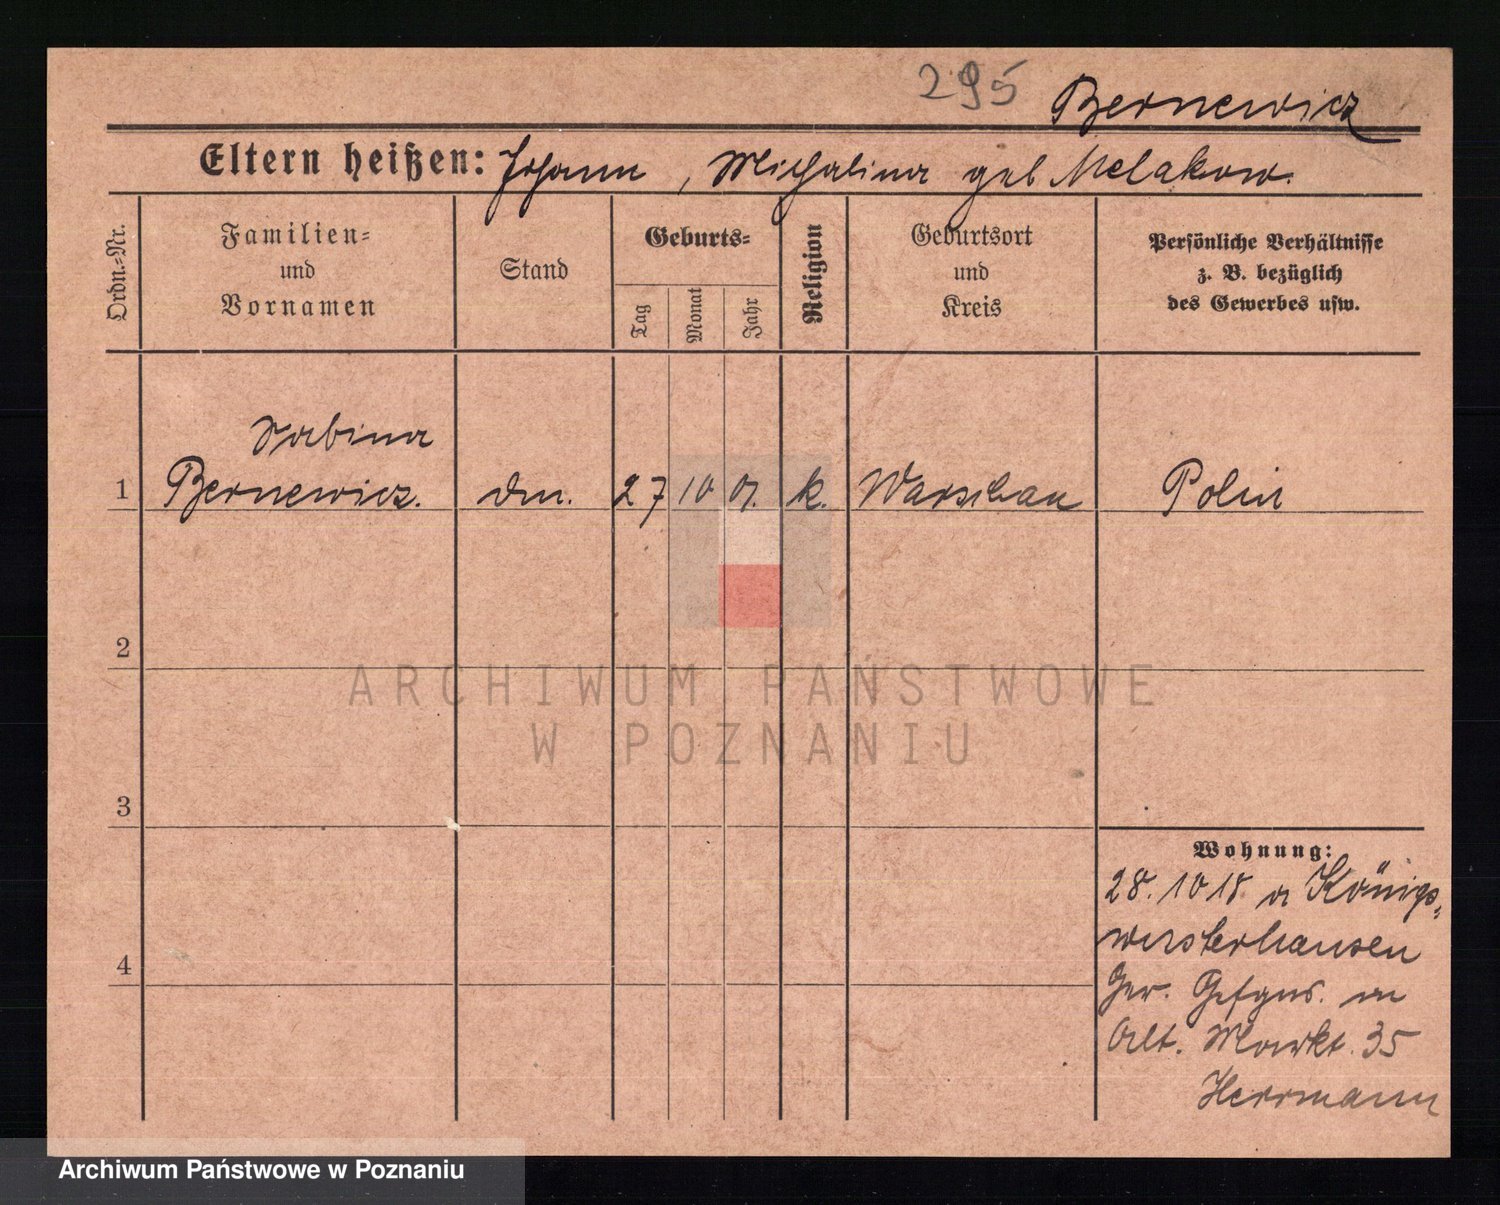 295 Bernewicz
Eltern heißen: Johann, Michalina geb Melakow.
Ordn.=Nr.
Familien=
und
Vornamen
Stand
Geburts=
Tag
Monat
Jahr
Religion
Geburtsort
und
Kreis
Persönliche Verhältnisse
z. B. bezüglich
des Gewerbes usw.
Sabina
1 Bernewicz. 27 10 01. k. Warschau Polin
2
3
4
ARCHIWUM PAŃSTWOWE
W POZNANIU
Wohnung:
28. 10 18. a Königs=
wusterhausen
Ger. Gefgns.
Alt. Markt. 35
Herrmann
Archiwum Państwowe w Poznaniu